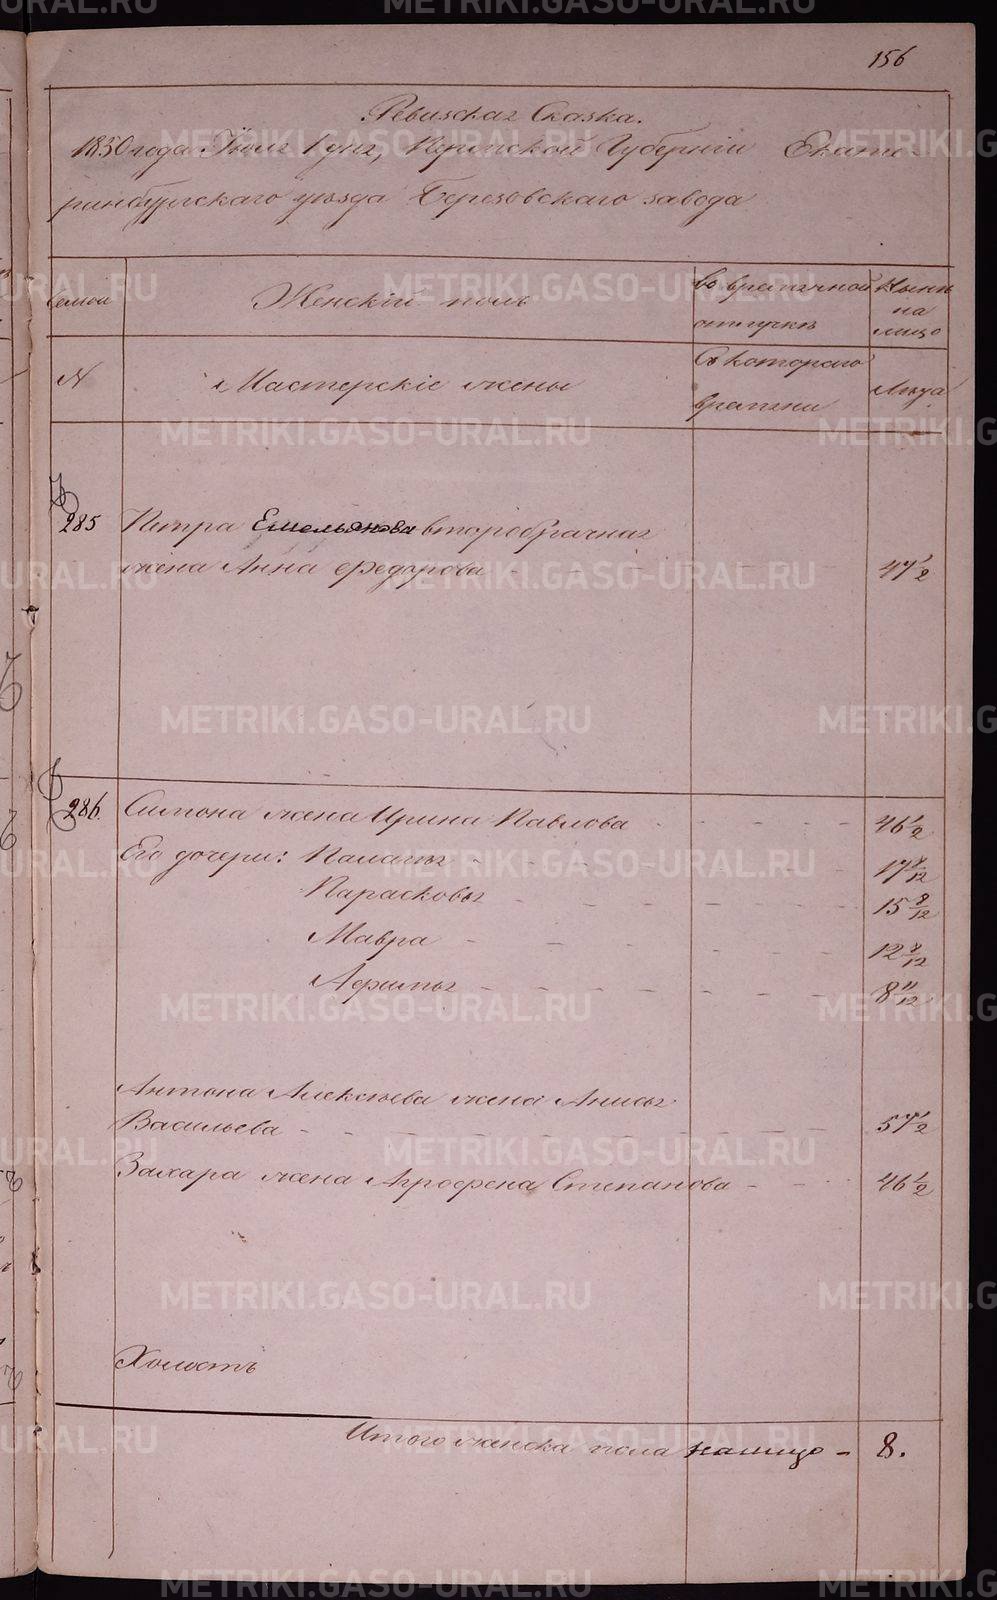 156
Ревизская Сказка.
1850 года Июля 1 дня, Пермской Губернiи Екате-
ринбургскаго уѣзда Березовскаго завода
Семьи
Женскiй полъ
Во временной
отлучкѣ
Нынѣ
на
лицо
№
Мастерскiе жены
Съ котораго
времени
Лѣта
285
Петра Емельянова второбрачная
жена Анна Федорова - - - - 47 1/2
286.
Симона жена Ирина Павлова - - - - 46 1/2
Его дочери: Палагѣя - - - - 17 8/12
Парасковья - - - - 15 8/12
Мавра - - - - 12 8/12
Афимья - - - - 8 11/12
Антона Алексѣева жена Анисья
Васильева - - - - 57 1/2
Захара жена Агрофена Степанова - - - 46 1/2
Холостъ
Итого женска пола налицо - 8.
METRIKI.GASO-URAL.RU